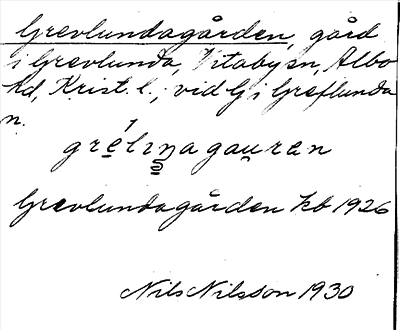 Grevlundagården, gård
i Grevlunda, Vitaby sn, Albo
hd, Krist. l., vid G i Greflunda
n.
grelinagauren
Grevlundagården kb 1926
Nils Nilsson 1930